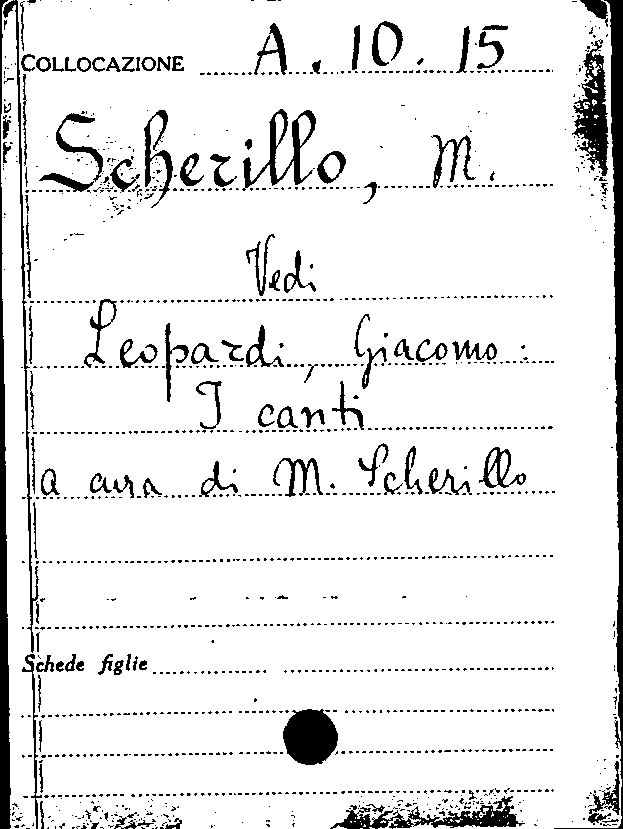 COLLOCAZIONE A. 10. 15
Scherillo, M.
Vedi
Leopardi, Giacomo:
I canti
a cura di M. Scherillo
Schede figlie